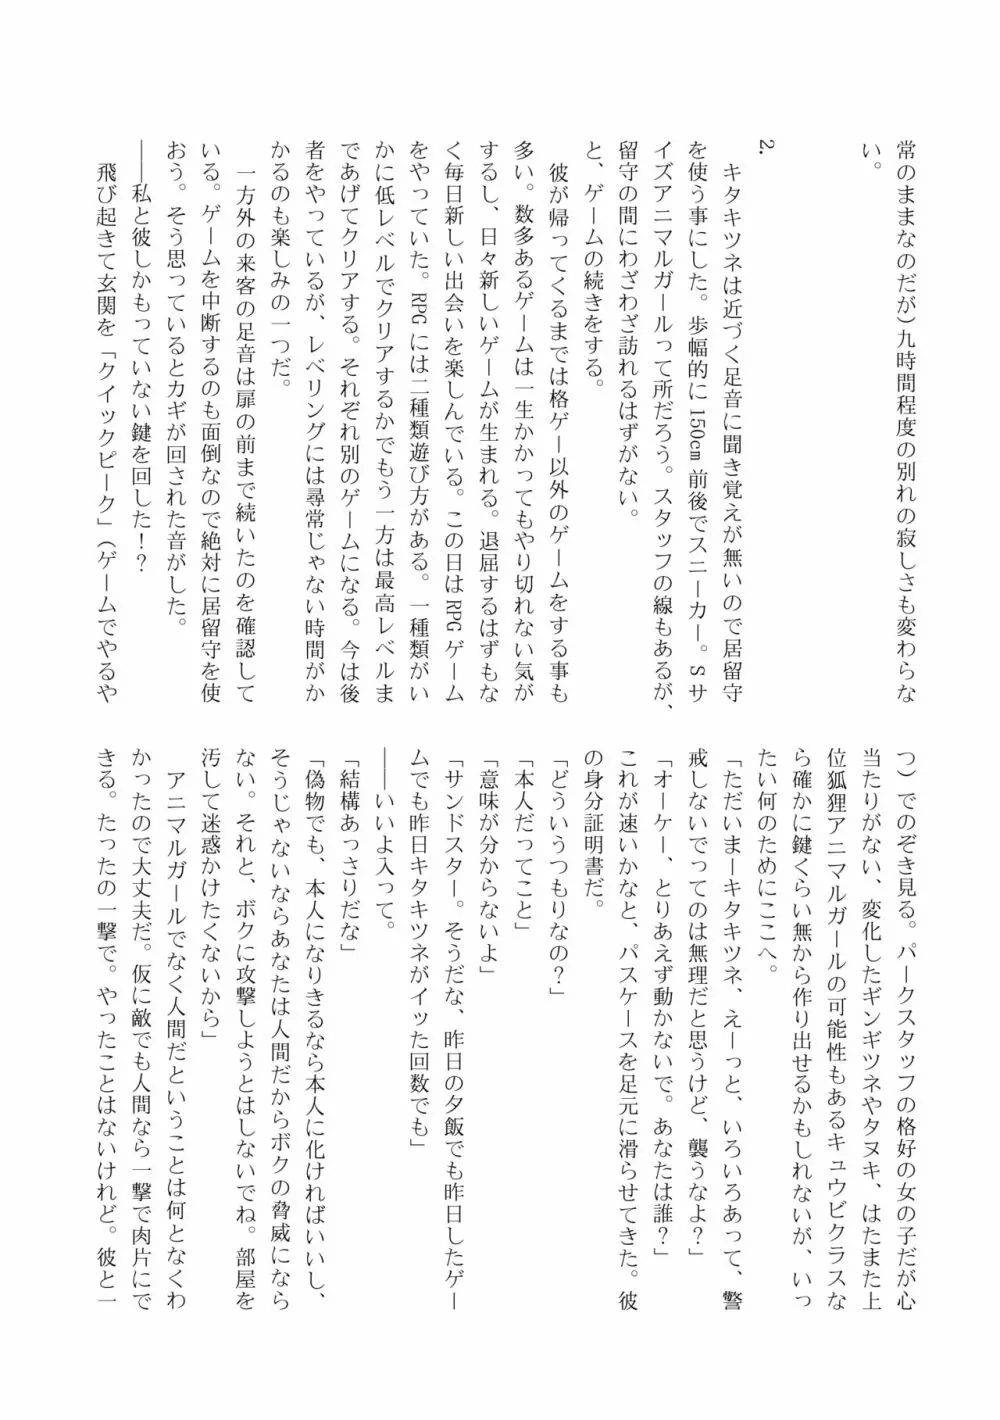 常のままなのだが）九時間程度の別れの寂しさも変わらな
い。
2.
キタキツネは近づく足音に聞き覚えが無いので居留守
を使う事にした。歩幅的に 150cm 前後でスニーカー。S サ
イズアニマルガールって所だろう。スタッフの線もあるが、
留守の間にわざわざ訪れるはずがない。
と、ゲームの続きをする。
彼が帰ってくるまでは格ゲー以外のゲームをする事も
多い。数多あるゲームは一生かかってもやり切れない気が
するし、日々新しいゲームが生まれる。退屈するはずもな
く毎日新しい出会いを楽しんでいる。この日は RPG ゲーム
をやっていた。RPG には二種類遊び方がある。一種類がい
かに低レベルでクリアするかでもう一方は最高レベルま
であげてクリアする。それぞれ別のゲームになる。今は後
者をやっているが、レベリングには尋常じゃない時間がか
かるのも楽しみの一つだ。
一方外の来客の足音は扉の前まで続いたのを確認して
いる。ゲームを中断するのも面倒なので絶対に居留守を使
おう。そう思っているとカギが回された音がした。
――私と彼しかもっていない鍵を回した！？
飛び起きて玄関を「クイックピーク」（ゲームでやるや
つ）でのぞき見る。パークスタッフの格好の女の子だが心
当たりがない、変化したギンギツネやタヌキ、はたまた上
位狐狸アニマルガールの可能性もあるキュウビクラスな
ら確かに鍵くらい無から作り出せるかもしれないが、いっ
たい何のためにここへ。
「ただいまーキタキツネ、えーっと、いろいろあって、警
戒しないでってのは無理だと思うけど、襲うなよ？」
「オーケー、とりあえず動かないで。あなたは誰？」
これが速いかなと、パスケースを足元に滑らせてきた。彼
の身分証明書だ。
「どういうつもりなの？」
「本人だってこと」
「意味が分からないよ」
「サンドスター。そうだな、昨日の夕飯でも昨日したゲー
ムでも昨日キタキツネがイッた回数でも」
――いいよ入って。
「結構あっさりだな」
「偽物でも、本人になりきるなら本人に化ければいいし、
そうじゃないならあなたは人間だからボクの脅威になら
ない。それと、ボクに攻撃しようとはしないでね。部屋を
汚して迷惑かけたくないから」
アニマルガールでなく人間だということは何となくわ
かったので大丈夫だ。仮に敵でも人間なら一撃で肉片にで
きる。たったの一撃で。やったことはないけれど。彼と一